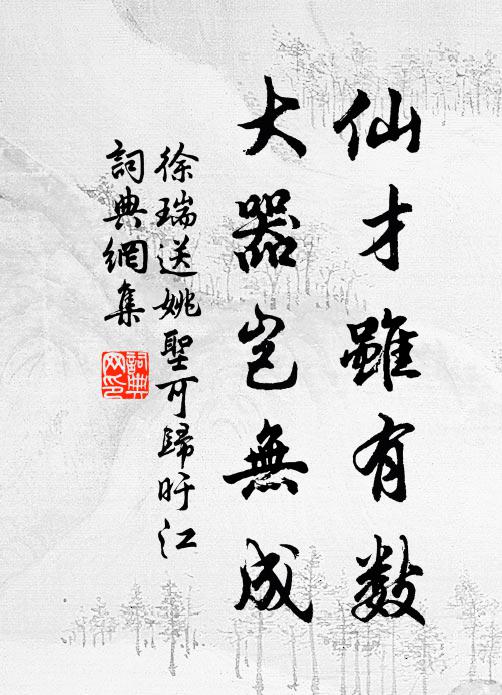 仙才雖有数
大器岂無成
徐瑞送姚聖可歸旴江
詞典網集
詞典网印